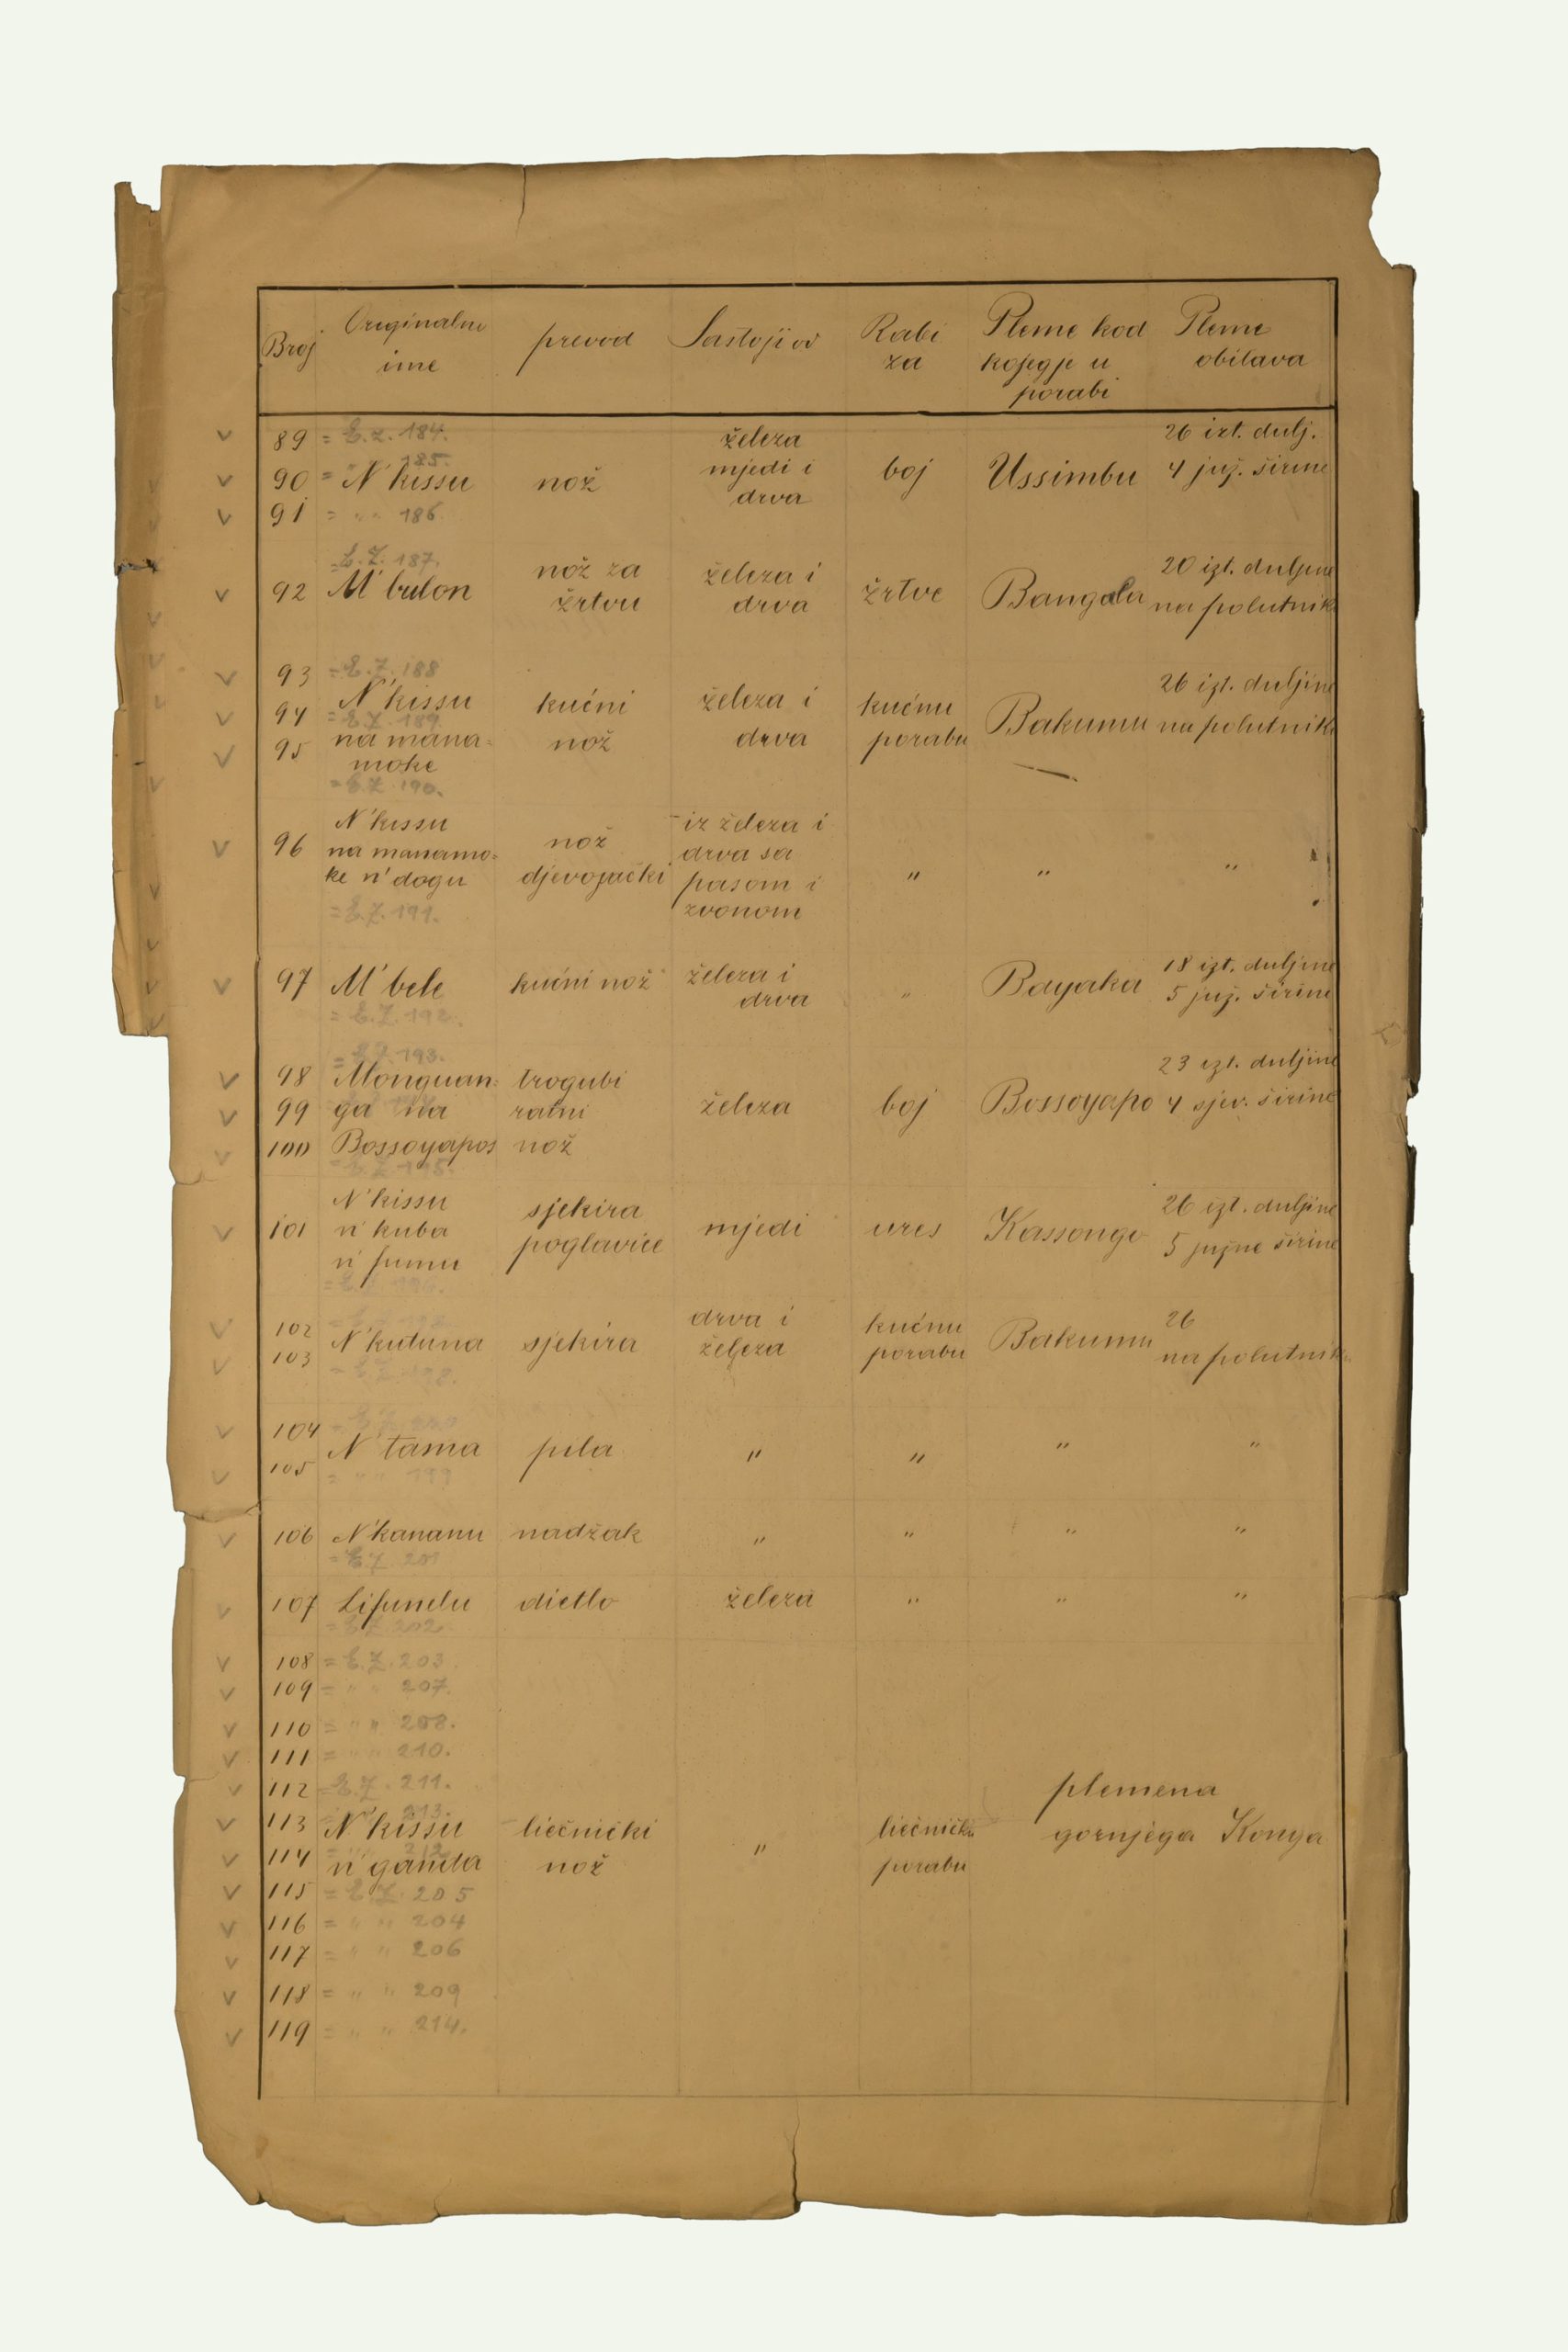 Broj Originalno ime prevod Sastoji od Rabi za Pleme kod kojeg je u porabi Pleme obitava
89 = E.Z. 184. železa 26 izt. dulj.
90 = " 185. N'kissu nož mjedi i boj Ussimbu 4 juž. širine
91 = " " 186 drva
= E.Z. 187. nož za železa i 20 izt. duljine
92 M'bulon žrtvu drva žrtve Bangala na polutniku
93 = E.Z. 188 26 izt. duljine
94 N'kissu kućni železa i kućnu Bakumu na polutniku
= E.Z. 189
95 na mana= nož drva porabu
moke
= E.Z. 190.
N'kissu iz železa i
96 na manamo= nož drva sa
ke n'dogu djevojački pasom i " " "
= E.Z. 191. zvonom
97 M'bele kućni nož železa i drva " Bayaka 18 izt. duljine
= E.Z. 192. 5 juž. širine
= E.Z. 193. 23 izt. duljine
98 Monguan= trogubi
99 ga na ratni železa boj Bossoyapo 4 sjev. širine
100 Bossoyapos nož
= E.Z. 195.
N'kissu sjekira 26 izt. duljine
101 n'kuba poglavice mjedi ures Kassongo 5 južne širine
n'fumu
= E.Z. 196.
102 drva i kućnu 26
N'kutuna sjekira železa porabu Bakumu na polutniku
103 = E.Z. 198.
104 = E.Z. 200
N'tama pila " " " "
105 = " " 199
106 N'kananu nadžak " " " "
= E.Z. 201
107 Lifundu dietlo železa " " "
= E.Z. 202
108 = E.Z. 203
109 = " " 207.
110 = " " 208.
111 = " " 210.
112 = E.Z. 211. plemena
113 = 213. N'kissu liečnički " liečničku gornjega Konga
114 = 212 n'ganda nož porabu
115 = E.Z. 205
116 = " " 204
117 = " " 206
118 = " " 209
119 = " " 214.